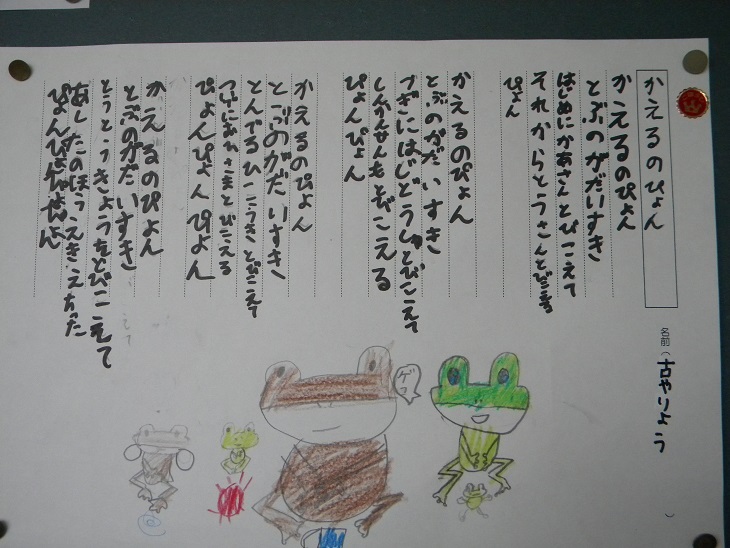 かえるのぴょん
かえるのぴょん
とぶのがだいすき
はじめにかあさんとびこえて
それからとうさんとびこえる
ぴょん
かえるのぴょん
とぶのがだいすき
つぎにはじどうしゃとびこえて
しんかんせんもとびこえる
ぴょんぴょん
かえるのぴょん
とぶのがだいすき
とんでるひこうきとびこえて
ついでにおひさまとびこえる
ぴょんぴょんぴょん
かえるのぴょん
とぶのがだいすき
とうとうきょうをとびこえて
あしたのほうへきえちゃった
ぴょんぴょんぴょんぴょん
名前（古やりょう）
ゲコ